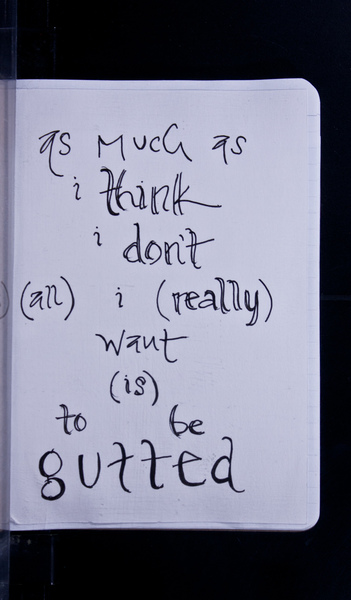 as much as
i think
i don't
) (all) i (really)
want
(is)
to be
gutted